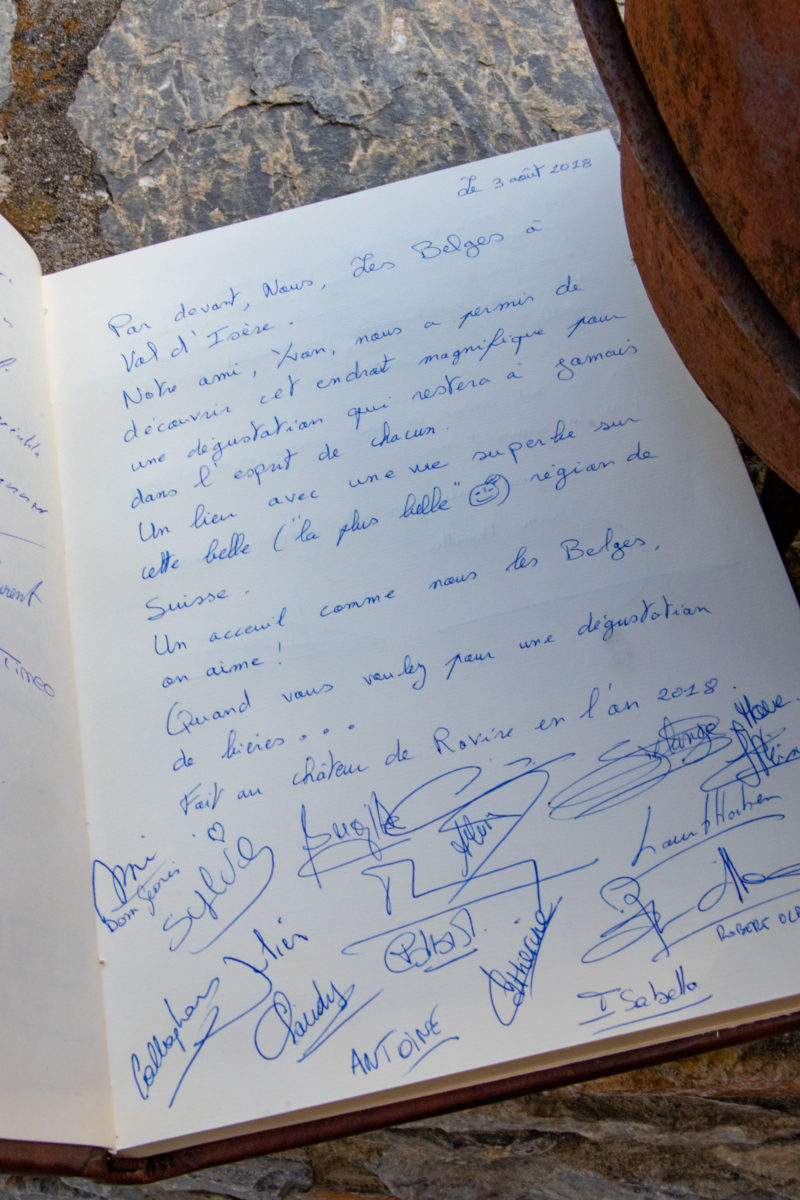 Le 3 août 2018
Par devant, Nous, Les Belges à
Val d'Isère.
Notre ami, Yvan, nous a permis de
découvrir cet endroit magnifique pour
une dégustation qui restera à jamais
dans l'esprit de chacun.
Un lieu avec une vue superbe sur
cette belle ("la plus belle" ) région de
Suisse.
Un acceuil comme nous les Belges,
on aime !
Quand vous voulez pour une dégustation
de bières...
Fait au château de Rovire en l'an 2018.
Sylvia
Brigitte
Solange
Julien
Callaghan
Claudy
ANTOINE
Catherine
ISabella
ROBERT
TIMEO